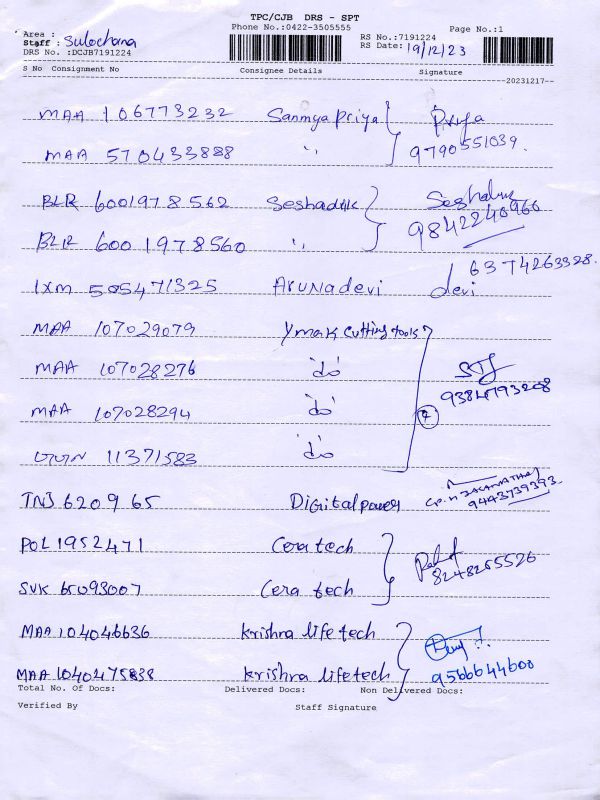 TPC/CJB DRS - SPT
Phone No.:0422-3505555 Page No.:1
Area :
Staff : Sulochana RS No.:7191224
DRS No. :DCJB7191224 RS Date: 19/12/23
S No Consignment No Consignee Details Signature
20231217--
MAA 106773232 Sanmya Priya Priya
MAA 570433888 " 9790551039.
BLR 6001978562 9842240960
BLR 6001978560 "
IXM 505471325 Aruna devi devi 6374263328.
MAA 107029079 Ymak Cutting tools
MAA 107028276 "do"
MAA 107028294 "do"
11371583 "do"
TNJ 620965 Digital power 9443739393
POL 1952471 Cera tech
SVK 65093007 Cera tech 8248255526
MAA 104046636 krishra life tech
MAA 1040475838 krishra lifetech 9566644600
Total No. Of Docs: Delivered Docs: Non Delivered Docs:
Verified By Staff Signature